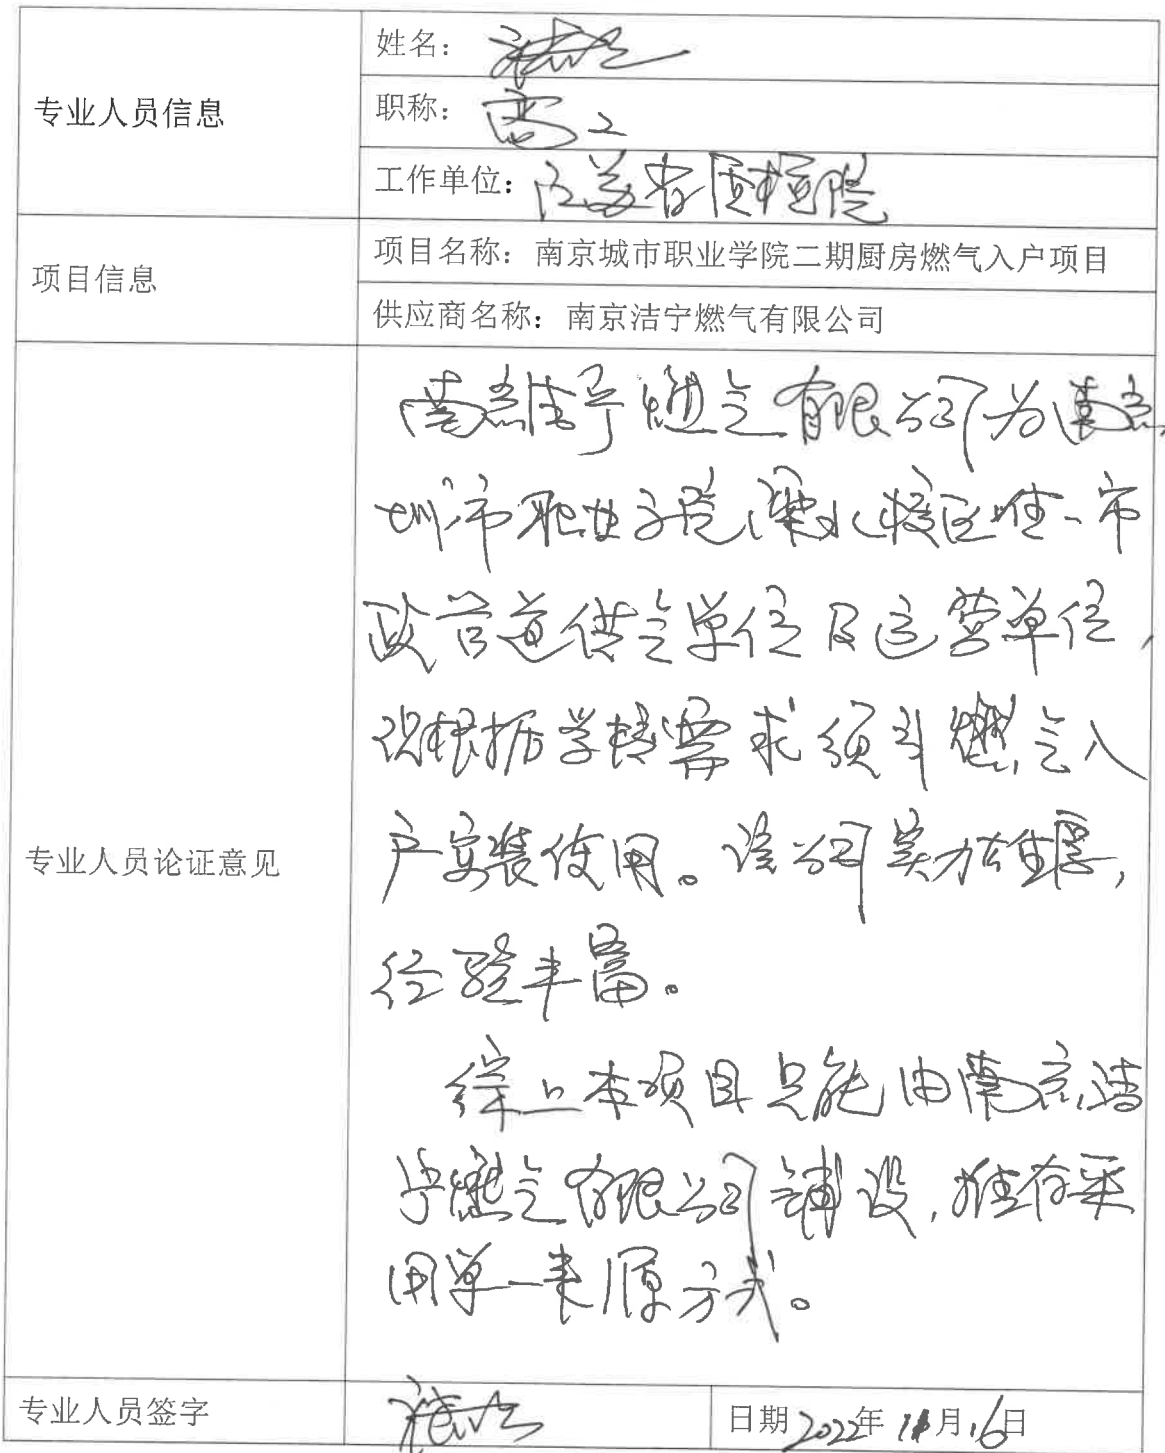 专业人员信息
姓名：
职称：高工
工作单位：江苏省质检院
项目信息
项目名称：南京城市职业学院二期厨房燃气入户项目
供应商名称：南京洁宁燃气有限公司
专业人员论证意见
南京洁宁燃气有限公司为南京
城市职业学院溧水校区唯一市
政管道供气单位及运营单位，
现根据学校需求须到燃气入
户安装使用。该公司实力雄厚，
经验丰富。
综上本项目只能由南京洁
宁燃气有限公司铺设，推荐采
用单一来源方式。
专业人员签字
日期2022年11月16日